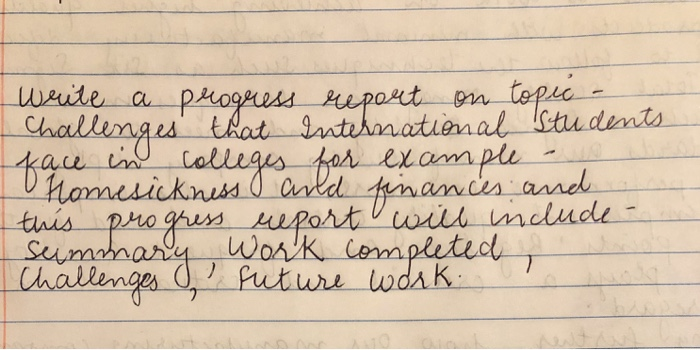 Write a progress report on topic -
Challenges that International Students
face in colleges for example -
Homesickness and finances and
this progress report will include -
Summary, Work completed,
Challenges, Future work.